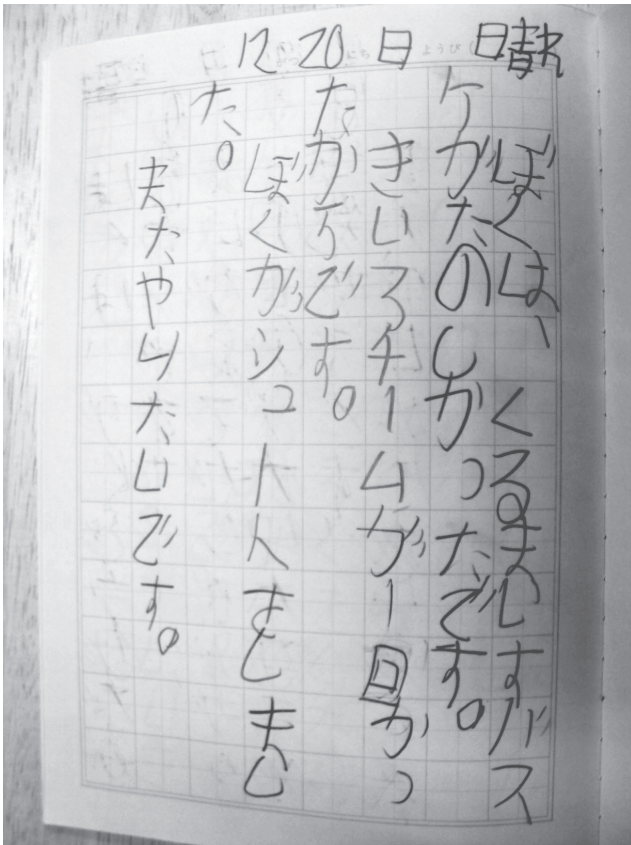 12 20 にち 日 ようび 晴れ
ぼくは、くるまいすバス
ケがたのしかったです。
きいろチームが一回かっ
たからです。
ぼくがシュトんをしまし
た。
またやりたいです。